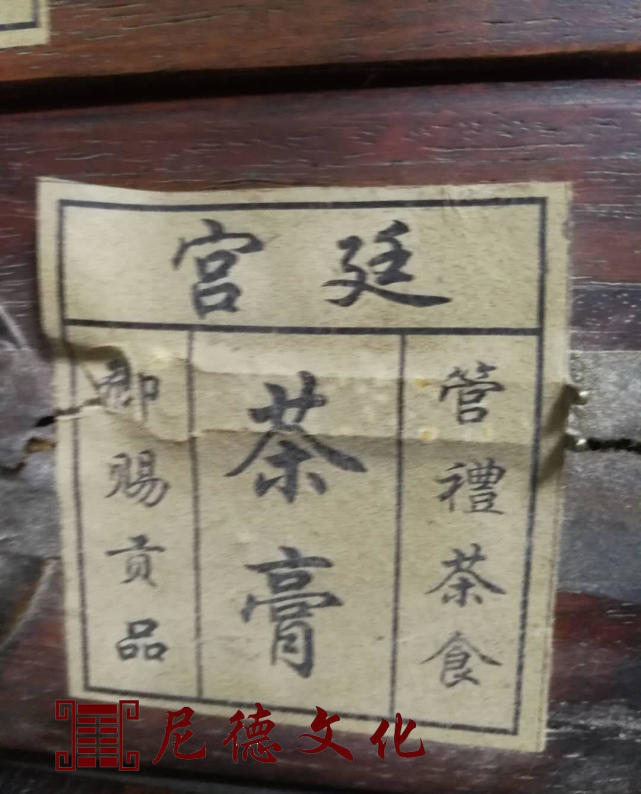 宫廷
管禮茶食
茶膏
御赐贡品
尼德文化